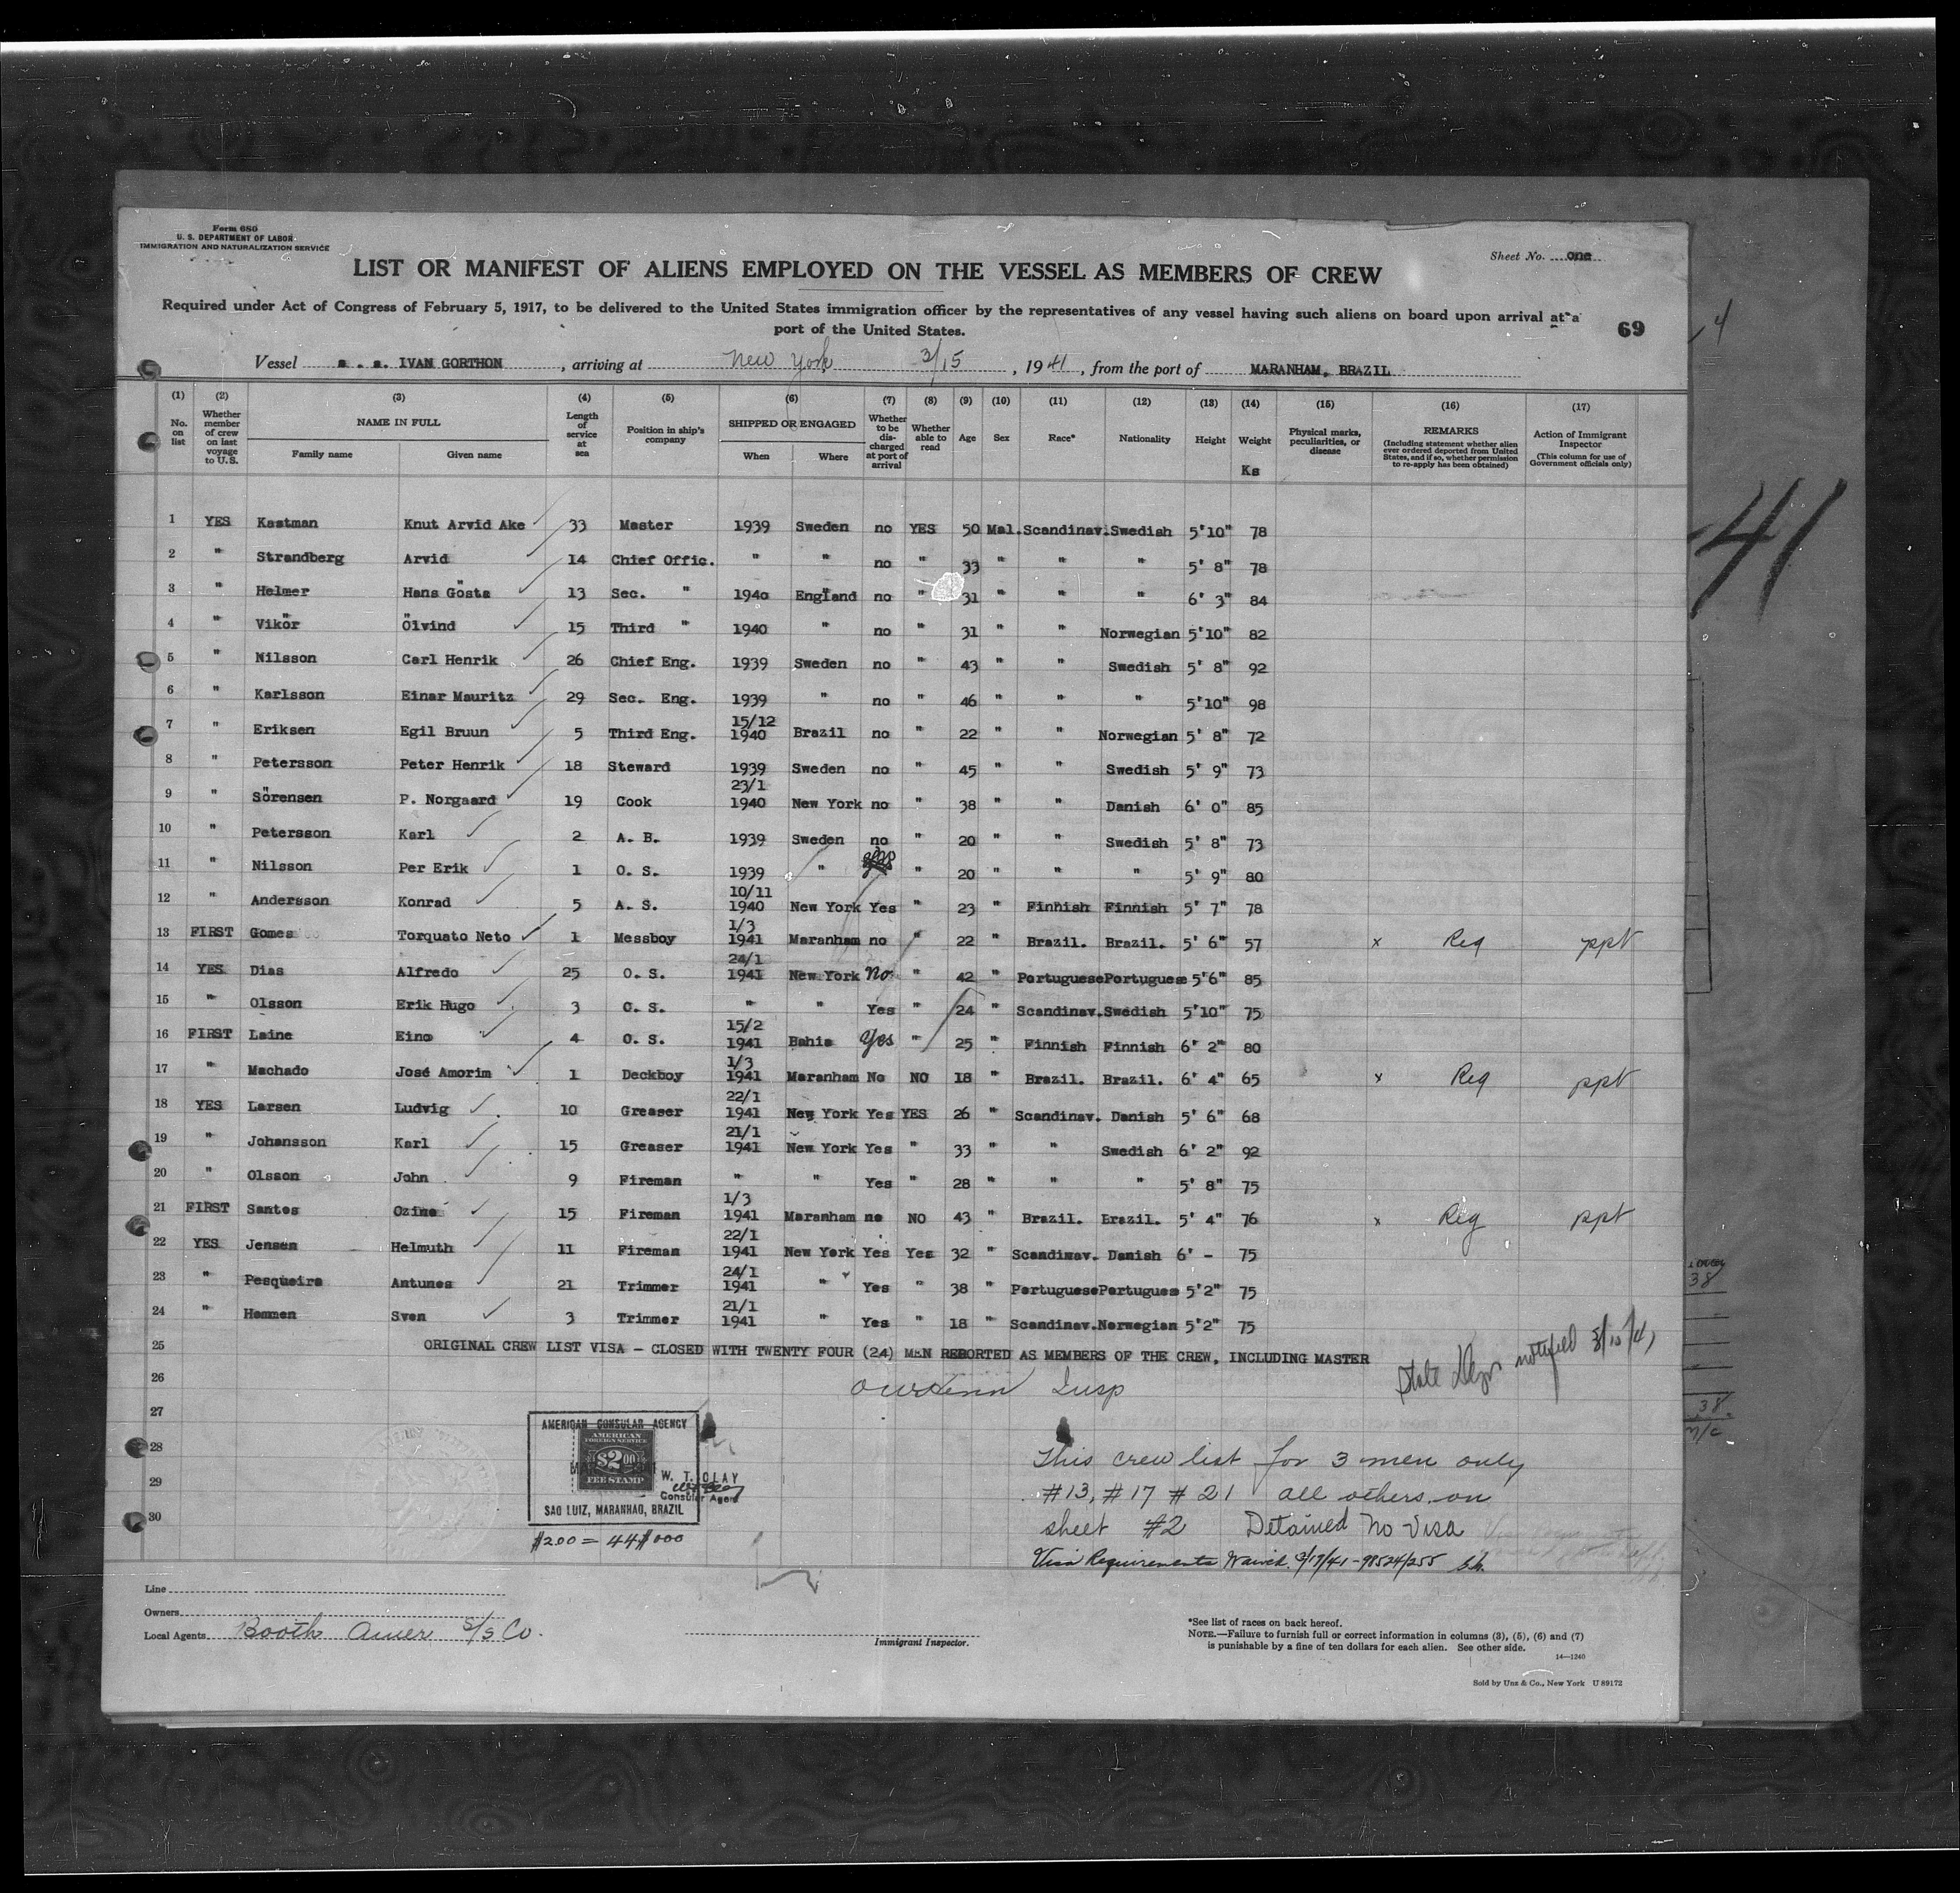 Form 680
U. S. DEPARTMENT OF LABOR
IMMIGRATION AND NATURALIZATION SERVICE
Sheet No. one
LIST OR MANIFEST OF ALIENS EMPLOYED ON THE VESSEL AS MEMBERS OF CREW
Required under Act of Congress of February 5, 1917, to be delivered to the United States immigration officer by the representatives of any vessel having such aliens on board upon arrival at a
port of the United States.
69
Vessel s. s. IVAN GORTHON, arriving at New York 3/15, 1941, from the port of MARANHAM, BRAZIL
(1) No. on list (2) Whether member of crew on last voyage to U.S. (3) NAME IN FULL Family name Given name (4) Length of service at sea (5) Position in ship's company (6) SHIPPED OR ENGAGED When Where (7) Whether to be discharged at port of arrival (8) Whether able to read (9) Age (10) Sex (11) Race* (12) Nationality (13) Height (14) Weight Ks (15) Physical marks, peculiarities, or disease (16) REMARKS (Including statement whether alien ever ordered deported from United States, and if so, whether permission to re-apply has been obtained) (17) Action of Immigrant Inspector (This column for use of Government officials only)
1 YES Kastman Knut Arvid Ake 33 Master 1939 Sweden no YES 50 Mal. Scandinav. Swedish 5'10" 78
2 " Strandberg Arvid 14 Chief Offic. " " no " 33 " " " 5' 8" 78
3 " Helmer Hans Gösta 13 Sec. " 1940 England no " 31 " " " 6' 3" 84
4 " Vikör Ölvind 15 Third " 1940 " no " 31 " " Norwegian 5'10" 82
5 " Nilsson Carl Henrik 26 Chief Eng. 1939 Sweden no " 43 " " Swedish 5' 8" 92
6 " Karlsson Einar Mauritz 29 Sec. Eng. 1939 " no " 46 " " " 5'10" 98
7 " Eriksen Egil Bruun 5 Third Eng. 15/12 1940 Brazil no " 22 " " Norwegian 5' 8" 72
8 " Petersson Peter Henrik 18 Steward 1939 Sweden no " 45 " " Swedish 5' 9" 73
9 " Sörensen P. Norgaard 19 Cook 23/1 1940 New York no " 38 " " Danish 6' 0" 85
10 " Petersson Karl 2 A. B. 1939 Sweden no " 20 " " Swedish 5' 8" 73
11 " Nilsson Per Erik 1 O. S. 1939 " " 20 " " " 5' 9" 80
12 " Andersson Konrad 5 A. S. 10/11 1940 New York Yes " 23 " Finnish Finnish 5' 7" 78
13 FIRST Gomes Torquato Neto 1 Messboy 1/3 1941 Maranham no " 22 " Brazil. Brazil. 5' 6" 57 x Reg ppt
14 YES Dias Alfredo 25 O. S. 24/1 1941 New York No " 42 " Portuguese Portuguese 5'6" 85
15 " Olsson Erik Hugo 3 O. S. " " Yes " 24 " Scandinav. Swedish 5'10" 75
16 FIRST Laine Eino 4 O. S. 15/2 1941 Bahia Yes " 25 " Finnish Finnish 6' 2" 80
17 " Machado José Amorim 1 Deckboy 1/3 1941 Maranham No NO 18 " Brazil. Brazil. 6' 4" 65 x Reg ppt
18 YES Larsen Ludvig 10 Greaser 22/1 1941 New York Yes YES 26 " Scandinav. Danish 5' 6" 68
19 " Johansson Karl 15 Greaser 21/1 1941 New York Yes " 33 " " Swedish 6' 2" 92
20 " Olsson John 9 Fireman " " Yes " 28 " " " 5' 8" 75
21 FIRST Santos Ozime 15 Fireman 1/3 1941 Maranham no NO 43 " Brazil. Brazil. 5' 4" 76 x Reg ppt
22 YES Jensen Helmuth 11 Fireman 22/1 1941 New York Yes Yes 32 " Scandinav. Danish 6' - 75
23 " Pesqueira Antunes 21 Trimmer 24/1 1941 " Yes " 38 " Portuguese Portugues 5'2" 75
24 " Hemmen Sven 3 Trimmer 21/1 1941 " Yes " 18 " Scandinav. Norwegian 5'2" 75
25 ORIGINAL CREW LIST VISA - CLOSED WITH TWENTY FOUR (24) MEN REPORTED AS MEMBERS OF THE CREW, INCLUDING MASTER
State Dept notified 3/15/41
26 Insp
27
28
29
30
AMERICAN CONSULAR AGENCY
AMERICAN
FOREIGN SERVICE
$2.00
FEE STAMP
W. T. OLAY
Consular Agent
SAO LUIZ, MARANHAO, BRAZIL
$2.00 = 44$000
This crew list for 3 men only
#13, #17 #21 all others on
sheet #2 Detained No Visa
Visa Requirements Waived 3/17/41 - 98524/255
41
4
38
38
n/c
Line
Owners
Local Agents Booth Amer S/S Co.
Immigrant Inspector.
*See list of races on back hereof.
NOTE.—Failure to furnish full or correct information in columns (3), (5), (6) and (7)
is punishable by a fine of ten dollars for each alien. See other side.
14—1240
Sold by Unz & Co., New York U 89172